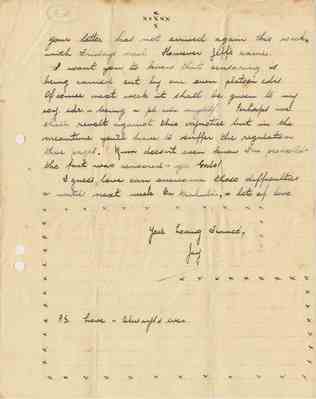 your letter has not arrived again this week
with Friday's mail. However Jeff's came.
I want you to know that censoring is
being carried out by our own platoon cdrs
Of course next week it shall be given to my
being a
revolt against this injustice but in the
meantime you'll have to suffer the regulation
three pages. Mum doesn't even know I'm
the but was censored - ye Gods!
I guess love can surmount these difficulties
until next week lots of love
Your loving fiancé,
Jay
P.S. Love - Always & ever.